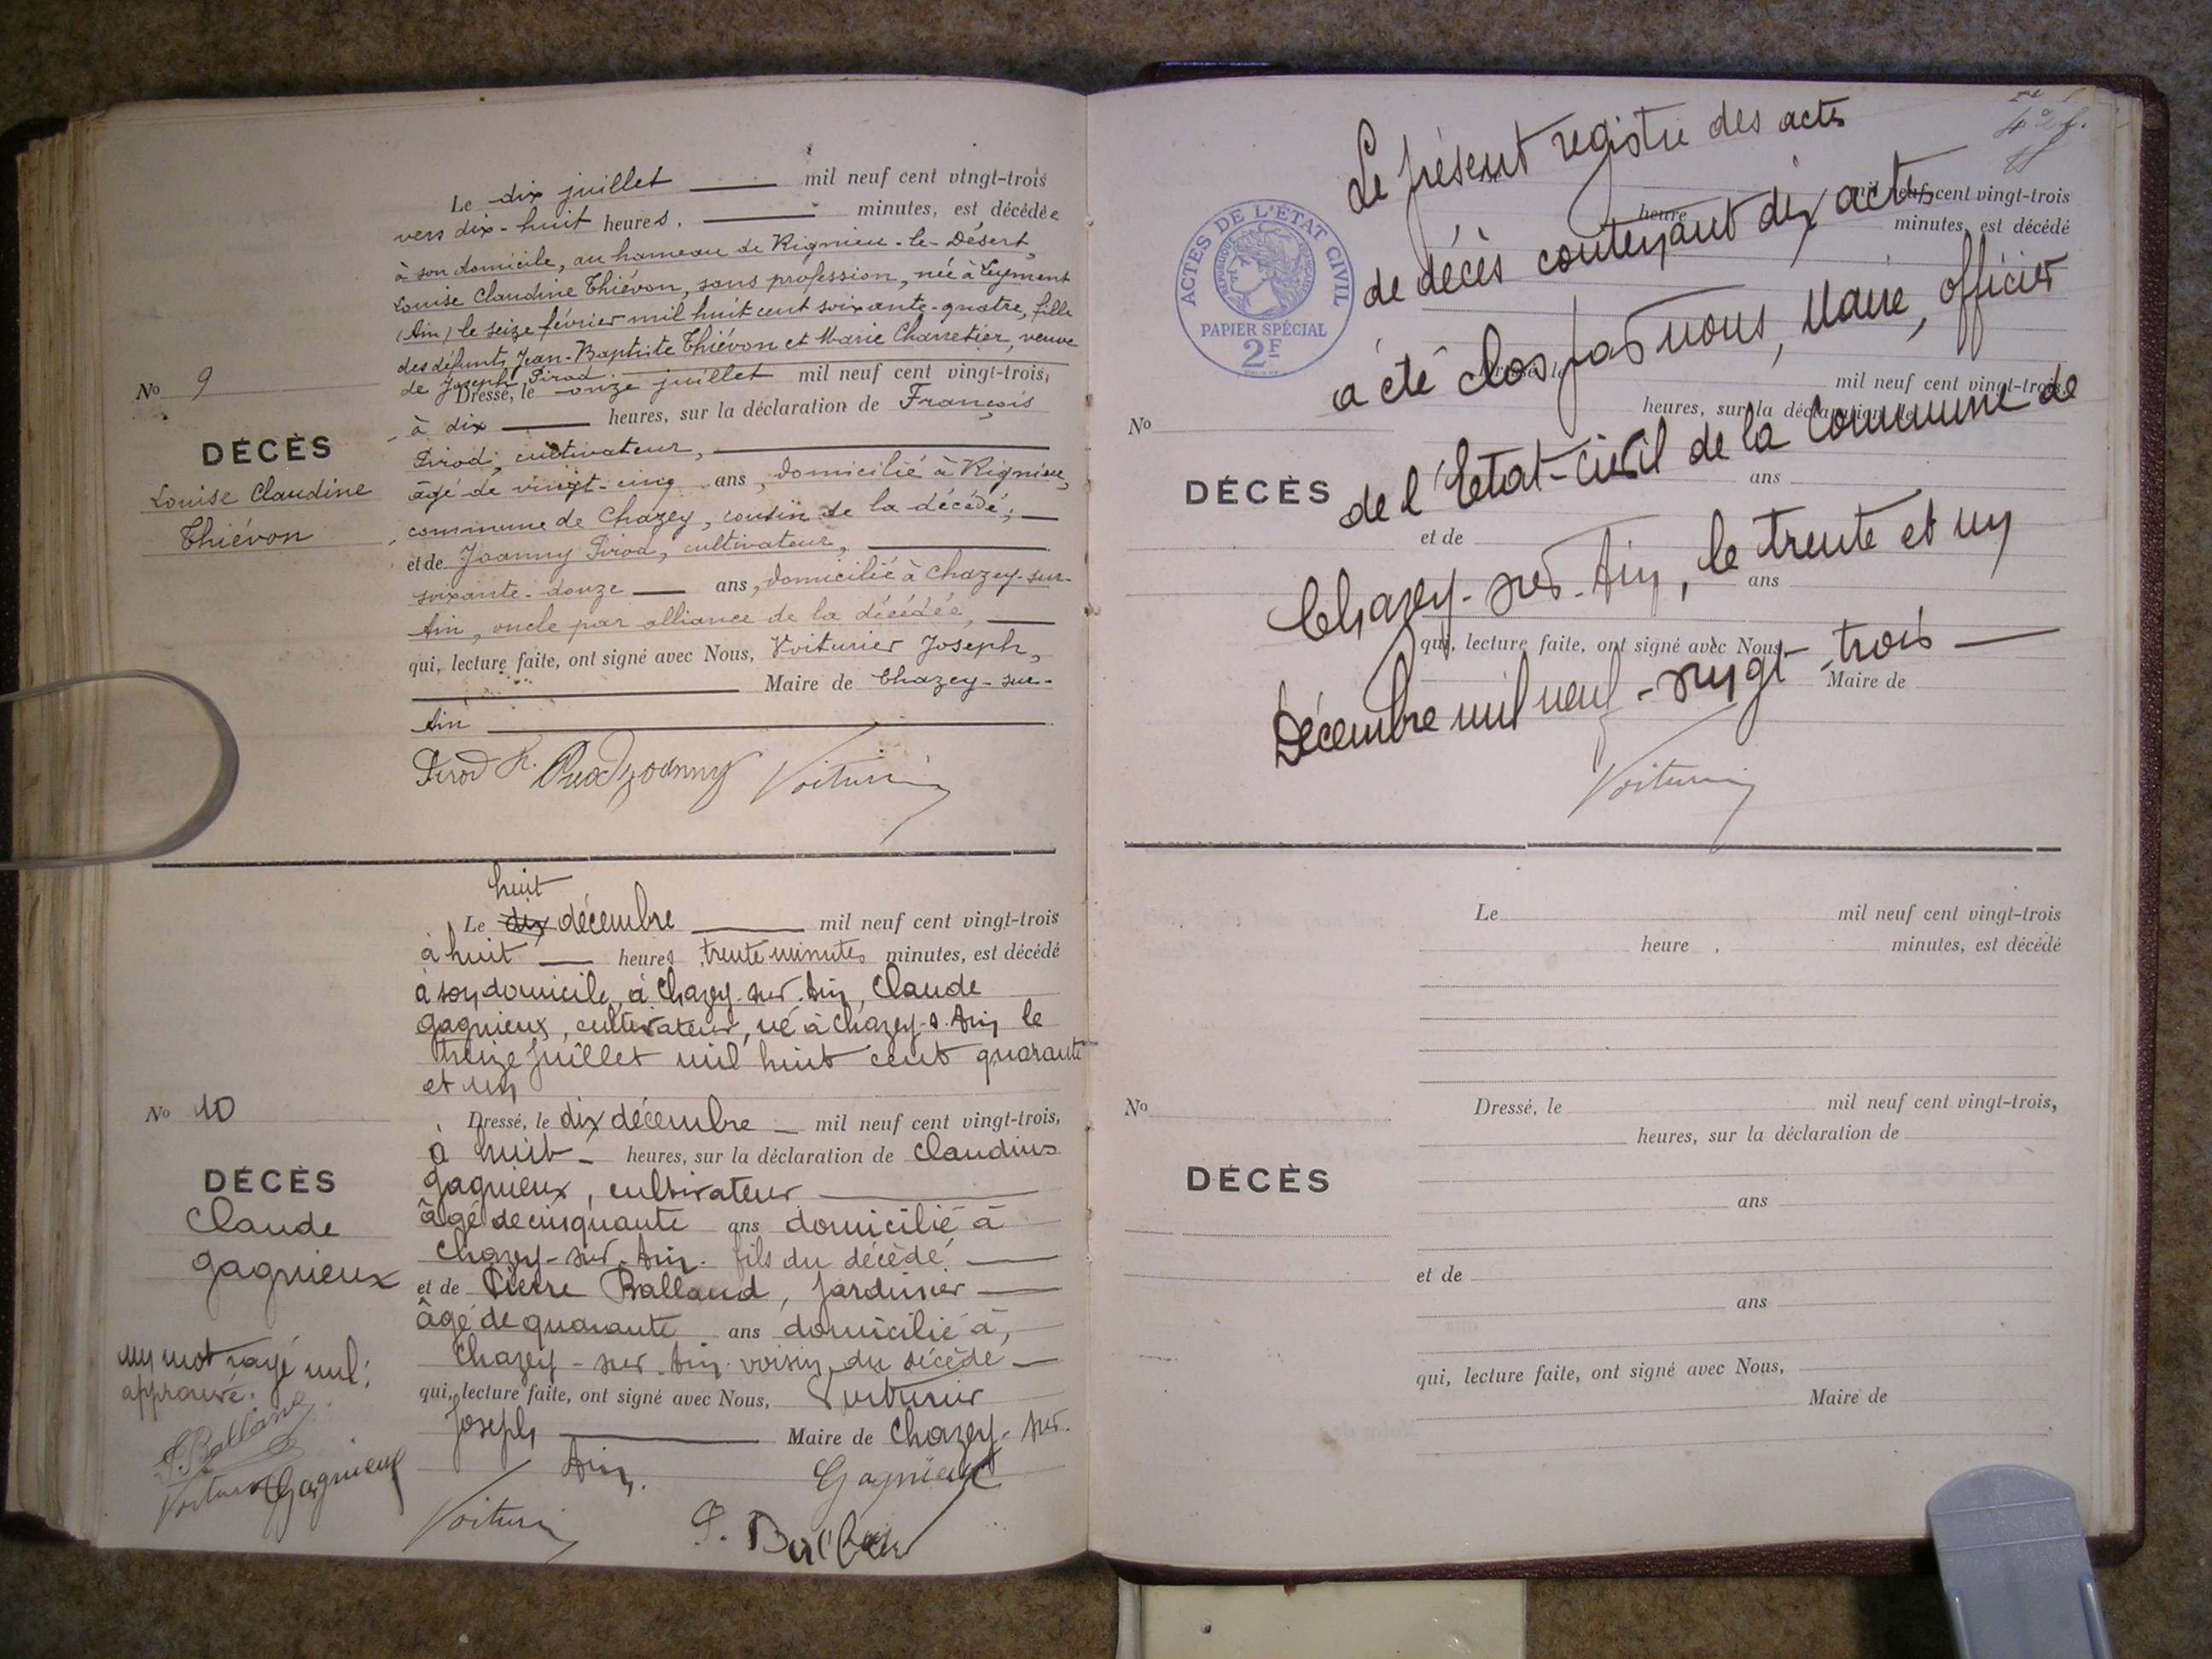 Le dix juillet mil neuf cent vingt-trois
vers dix-huit heures, minutes, est décédée
à son domicile, au hameau de Rignieu-le-Désert,
Louise Claudine Thiévon, sans profession, née à Leyment
(Ain) le seize février mil huit cent soixante-quatre, fille
des défunts Jean-Baptiste Thiévon et Marie Charretier, veuve
de Joseph Pirod.
Dressé, le onze juillet mil neuf cent vingt-trois,
à dix heures, sur la déclaration de François
Pirod, cultivateur,
âgé de vingt-cinq ans, domicilié à Rignieu,
commune de Chazey, cousin de la décédé;
et de Joanny Pirod, cultivateur,
soixante-douze ans, domicilié à Chazey-sur-
Ain, oncle par alliance de la décédée,
qui, lecture faite, ont signé avec Nous, Voiturier Joseph,
Maire de Chazey-sur-
Ain
Pirod F. Pirod Joanny Voiturier
No 9
DÉCÈS
Louise Claudine
Thiévon
huit
Le dix décembre mil neuf cent vingt-trois
à huit heures trente minutes minutes, est décédé
à son domicile, à Chazey-sur-Ain, Claude
Gagnieux, cultivateur, né à Chazey-s-Ain le
treize juillet mil huit cent quarante
et un
Dressé, le dix décembre mil neuf cent vingt-trois,
à huit heures, sur la déclaration de Claudius
Gagnieux, cultivateur
âgé de cinquante ans domicilié à
Chazey-sur-Ain. fils du décédé
et de Pierre Balland, jardinier
âgé de quarante ans domicilié à,
Chazey-sur-Ain. voisin du décédé
qui, lecture faite, ont signé avec Nous, Voiturier
Joseph Maire de Chazey-sur-
Ain.
Gagnieux
Voiturier P. Balland
No 10
DÉCÈS
Claude
Gagnieux
un mot rayé nul:
approuvé.
P. Balland
Voiturier Gagnieux
Le présent registre des actes
de décès contenant dix actes
a été clos par nous, Maire, officier
de l'Etat-civil de la Commune de
Chazey-sur-Ain, le trente et un
Décembre mil neuf-vingt-trois
Voiturier
ACTES DE L'ÉTAT CIVIL
RÉPUBLIQUE FRANÇAISE
PAPIER SPÉCIAL
2F
heure mil neuf cent vingt-trois
minutes, est décédé
Dressé, le mil neuf cent vingt-trois
heures, sur la déclaration de
No
DÉCÈS
ans
et de
ans
qui, lecture faite, ont signé avec Nous
Maire de
Le mil neuf cent vingt-trois
heure , minutes, est décédé
No
Dressé, le mil neuf cent vingt-trois,
heures, sur la déclaration de
DÉCÈS
ans
et de
ans
qui, lecture faite, ont signé avec Nous,
Maire de